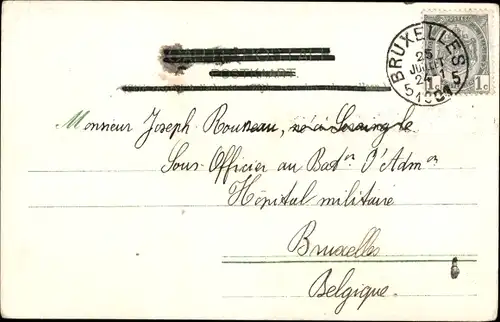 BRUXELLES
25
JUILT
5 1901 5
1c 1c
Monsieur Joseph Rouneau, né à Seraing le
Sous-Officier au Baton d'Admon
Hôpital militaire
Bruxelles
Belgique.